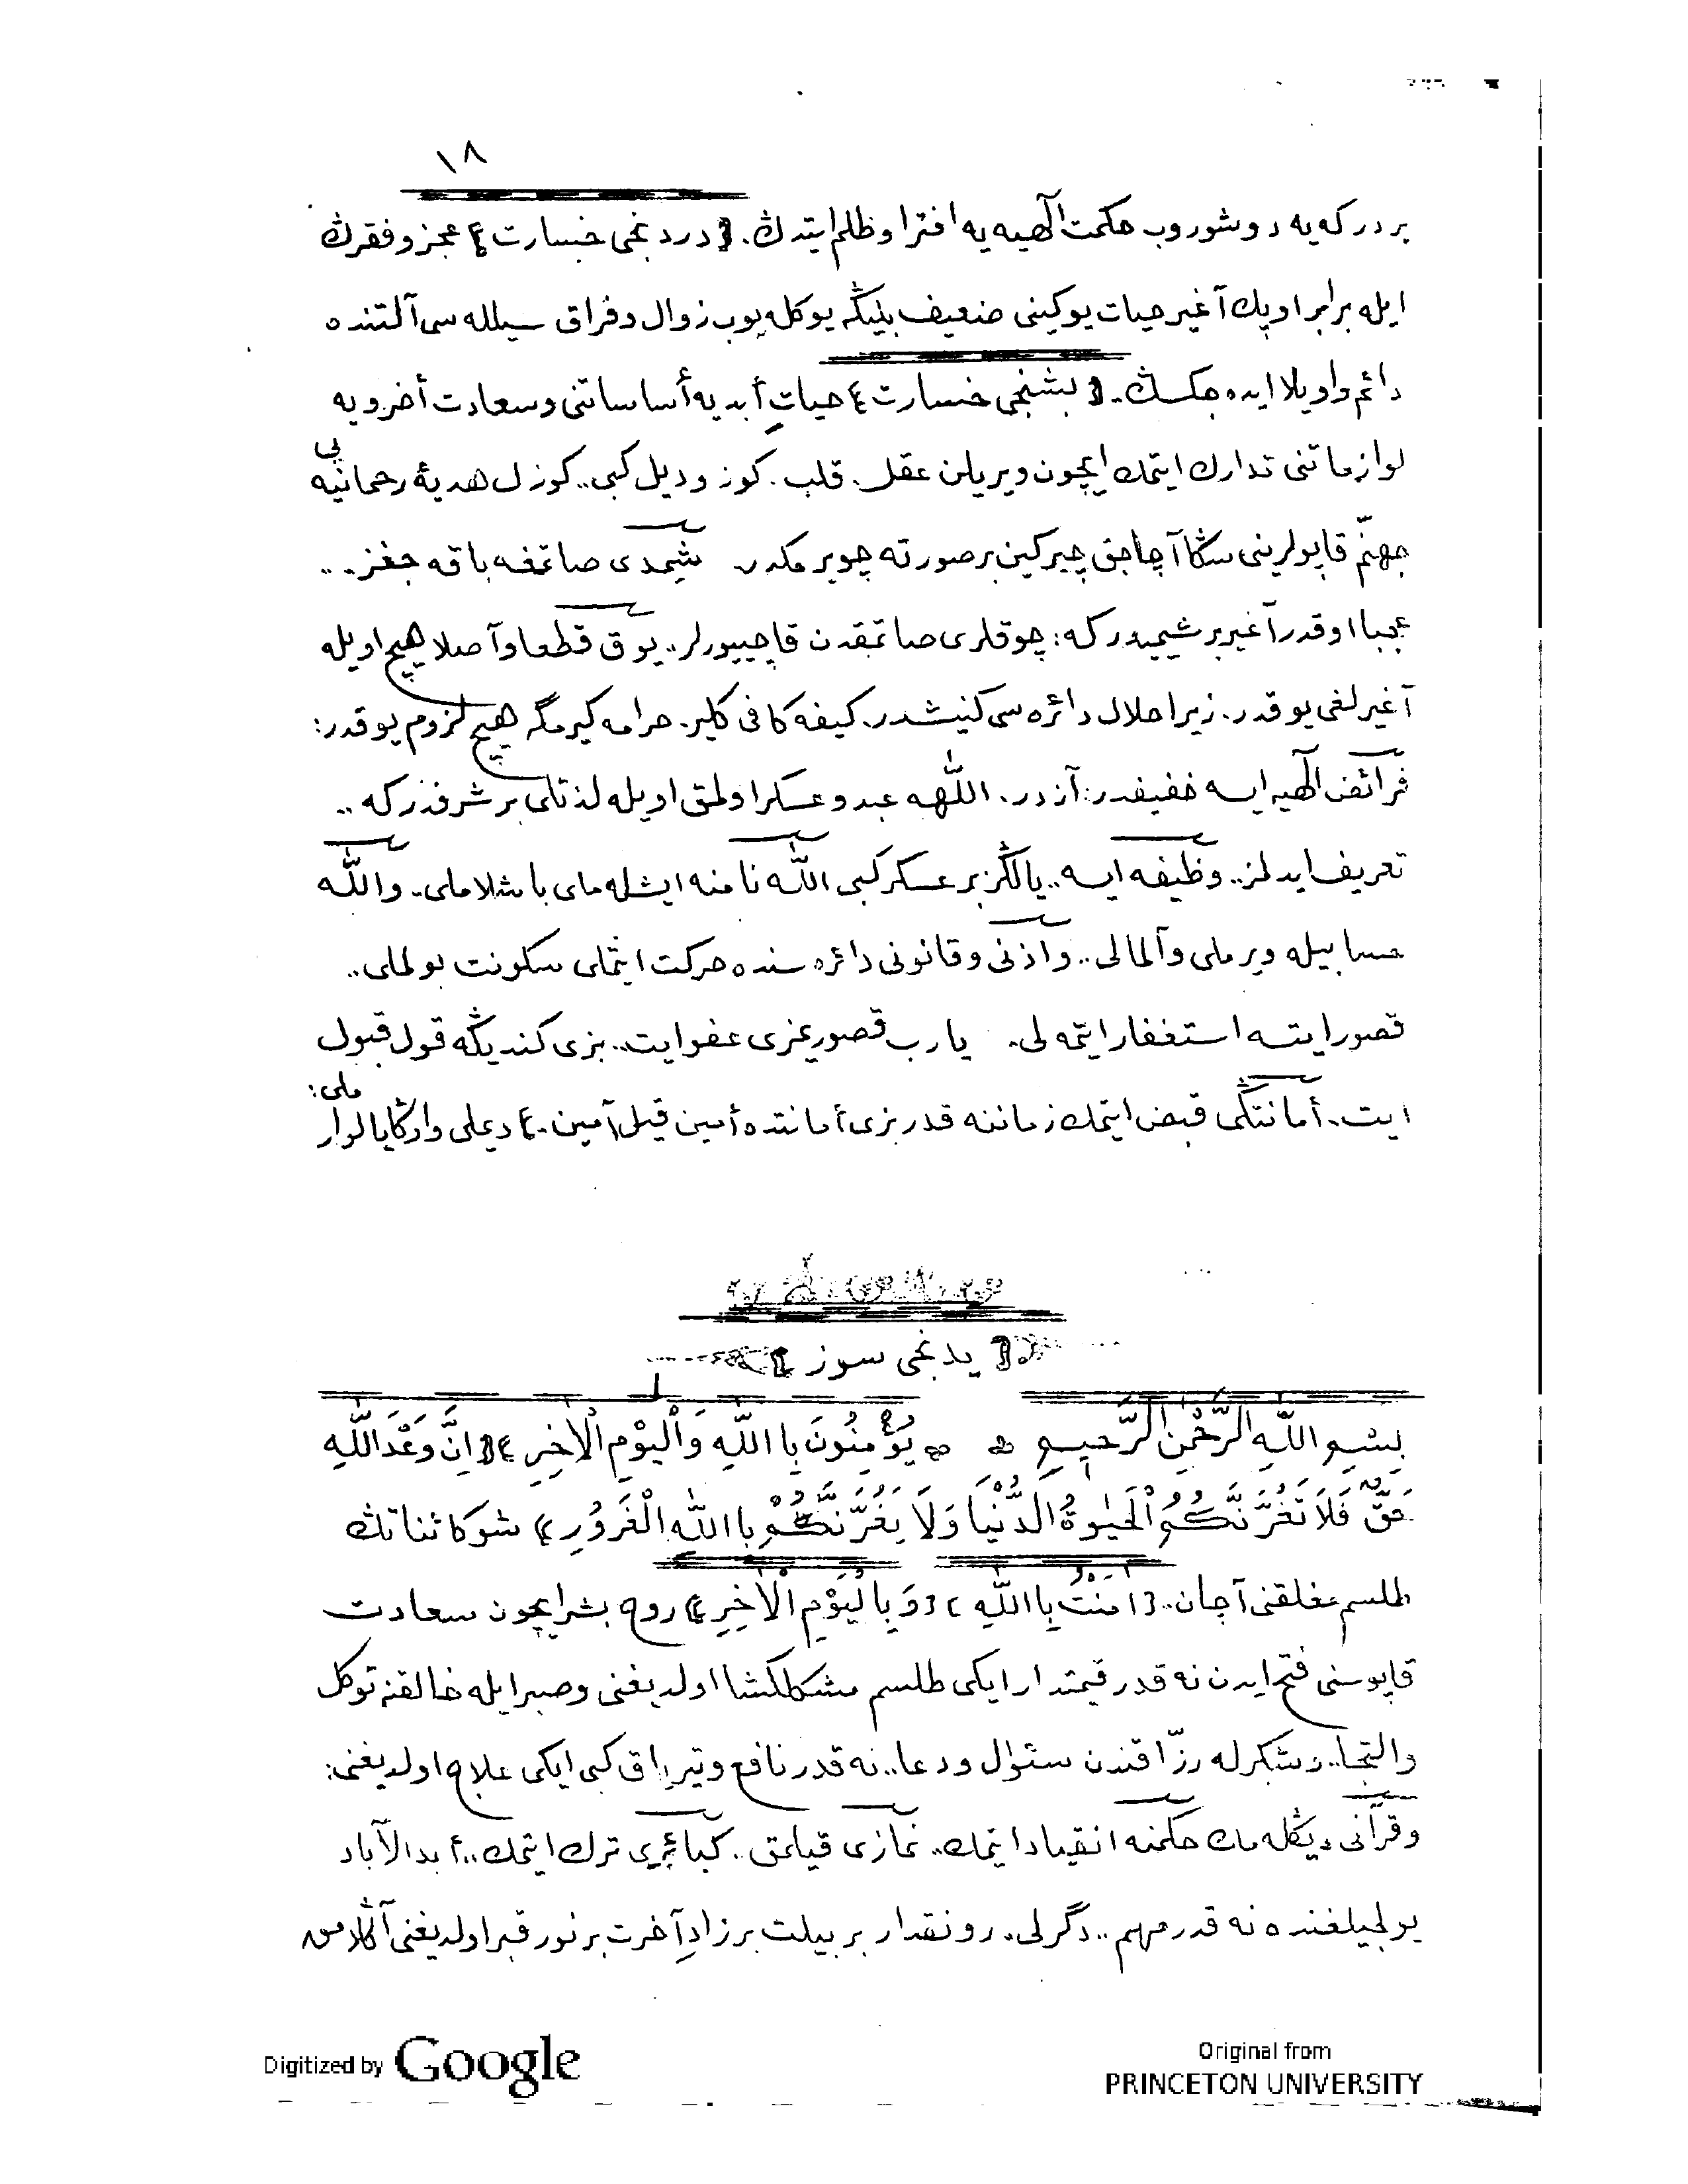 ١٨
بر دركه‌يه دوشوروب حكمت الٓهيه‌يه افترا و ظلم ايتدڭ. ﴿دردنجى خسارت﴾ عجز و فقرڭ
ايله برابر او پك آغير حيات يوكينى ضعيف بليڭه يوكله‌يوب زوال و فراق سيلله‌سى آلتنده
دائم واويلا ايده‌جكسڭ.. ﴿بشنجى خسارت﴾ حياتِ أبديه أساساتنى و سعادت أخرويه
لوازماتنى تدارك ايتمك ايچون ويريلن عقل. قلب. كوز و ديل كبى.. كوزل هديۀ رحمانيه‌يى
جهنّم قاپولرينى سڭا آچاجق چيركين بر صورته چويرمكدر. شيمدى صاتمغه باقه‌جغز..
عجبا او قدر آغير بر شيميدر كه: چوقلرى صاتمقدن قاچييورلر.. يوق قطعا و آصلا هيچ اويله
آغيرلغى يوقدر. زيرا حلال دائره‌سى كنيشدر. كيفه كافى كلير. حرامه كيرمگه هيچ لزوم يوقدر:
فرائض الٓهيه ايسه خفيفدر: آزدر. اللّٰهه عبد و عسكر اولمق اويله لذتلى بر شرفدر كه..
تعريف ايدلمز.. وظيفه ايسه.. يالڭز بر عسكر كبى اللّٰه نامنه ايشله‌ملى باشلاملى.. و اللّٰه
حسابيله ويرملى و آلمالى.. و اذنى و قانونى دائره‌سنده حركت ايتملى سكونت بولملى..
قصور ايتسه استغفار ايتمه‌لى. يا رب قصوريمزى عفو ايت.. بزى كنديڭه قول قبول
ايت.. أمانتڭى قبض ايتمك زماننه قدر بزى أمانتده أمين قيل آمين.﴾ ديملى و اوڭا يالوارملى:
﴿يدنجى سوز﴾
بِسْمِ اللّٰهِ الرَّحْمٰنِ الرَّحِيمِ يُؤْمِنُونَ بِا اللّٰهِ وَالْيَوْمِ الْاٰخِرِ ﴾﴿ اِنَّ وَعْدَ اللّٰهِ
حَقٌّ فَلَا تَغُرَّنَّكُمُ الْحَيٰوةُ الدُّنْيَا وَلَا يَغُرَّنَّكُمْ بِا اللّٰهِ الْغَرُورُ ﴾ شو كائناتك
طلسم مغلقنى آچان..﴿اٰمَنْتُ بِا اللّٰهِ﴾﴿وَ بِا لْيَوْمِ الْاٰخِرِ﴾ روح بشر ايچون سعادت
قاپوسنى فتح ايدن نه قدر قيمتدار ايكى طلسم مشكلكشا اولديغنى و صبر ايله خالقنه توكل
و التجا.. و شكر له رزّاقندن سئوال و دعا.. نه قدر نافع و ترياق كبى ايكى علاج اولديغنى:
و قرآنى ديڭله‌مك حكمنه انقياد ايتمك.. نمازى قيلمق. كبائرى ترك ايتمك.. أبد الآباد
يولجيلغنده نه قدر مهم.. دگرلى. رونقدار بر بيلت بر زادِ آخرت بر نور قبر اولديغنى آڭلامق
Digitized by Google
Original from
PRINCETON UNIVERSITY